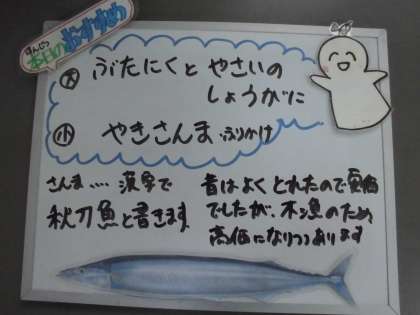 本日のおすすめ
大 ぶたにくと やさいの
しょうがに
小 やきさんま ふりかけ
さんま・・・・漢字で
秋刀魚と書きます
昔はよく とれたので安価
でしたが、不漁のため
高価になりつつあります